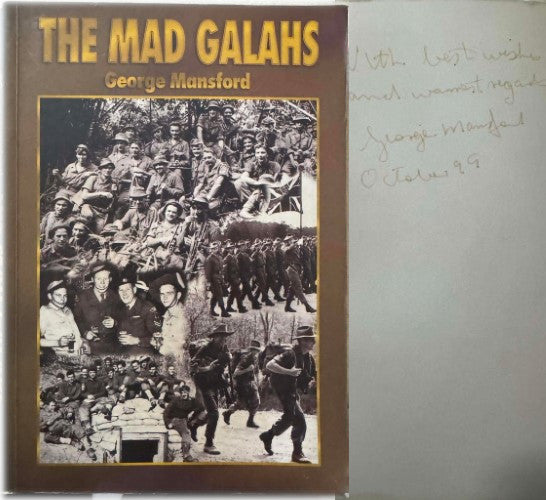 THE MAD GALAHS
George Mansford
With best wishe
and warmest regad
George Mansford
October 99